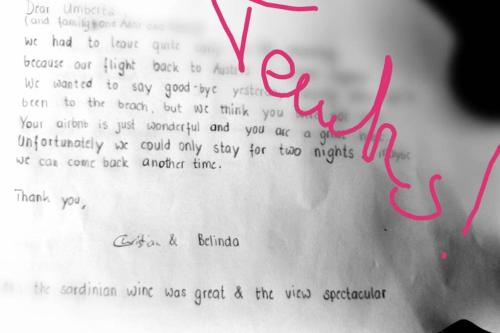 Dear Umberto
(and family and
we had to leave quite
because our flight back to
We wanted to say good-bye
been to the beach, but we think you
Your airbnb is just wonderful and you are a great
Unfortunately we could only stay for two nights
we can come back another time.
Thank you,
Cristian & Belinda
the sardinian wine was great & the view spectacular
Tenks!